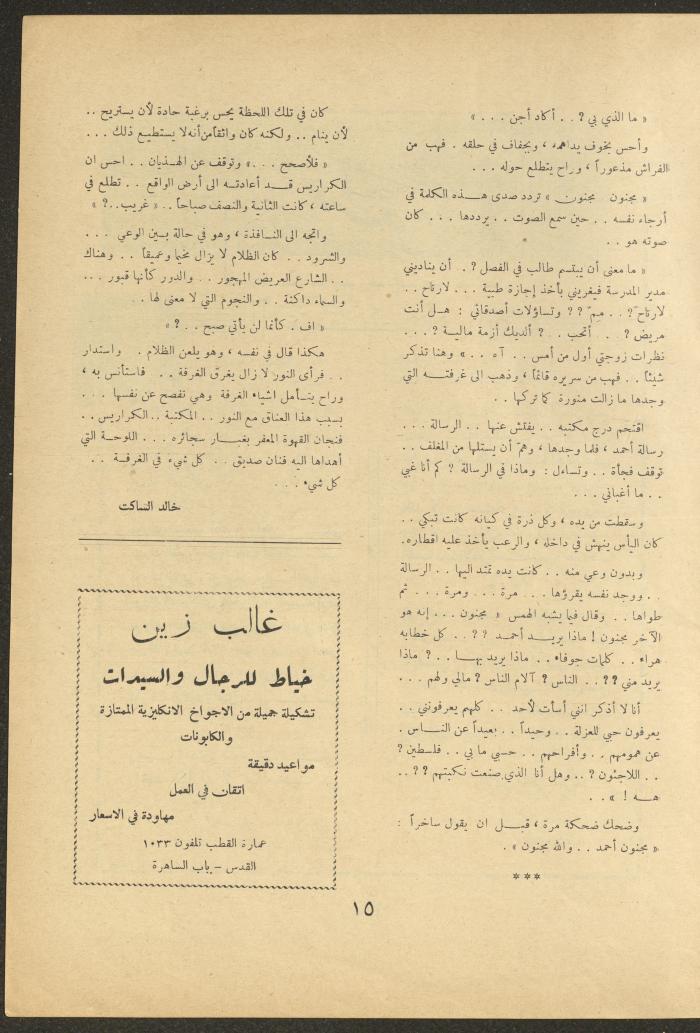 « ما الذي بي ؟ . . أكاد أجن . . . »
وأحس بخوف يداهمه ، وبجفاف في حلقه . فهب من
الفراش مذعوراً ، وراح يتطلع حوله . . .
« مجنون . مجنون » تردد صدى هذه الكلمة في
أرجاء نفسه . . حين سمع الصوت . . يرددها . . . كان
صوته هو . .
« ما معنى أن يبتسم طالب في الفصل ؟ . أن يناديني
مدير المدرسة فيغريني بأخذ إجازة طبية . . . لارتاح . .
لارتاح ؟ . . مم ؟ ؟ وتساؤلات أصدقائي : هل أنت
مريض ؟ . . أتحب . . ؟ ألديك أزمة مالية ؟ . . .
نظرات زوجتي أول من أمس . . آه . . » وهنا تذكر
شيئاً . . فهب من سريره قائماً ، وذهب الى غرفته التي
وجدها ما زالت منورة كما تركها . .
اقتحم درج مكتبه . . يفتش عنها . . الرسالة . . .
رسالة أحمد ، فلما وجدها ، وهمّ أن يستلها من المغلف . .
توقف فجأة . . وتساءل : وماذا في الرسالة ؟ كم أنا غبي
. . ما أغباني . . .
وسقطت من يده ، وكل ذرة في كيانه كانت تبكي . .
كان اليأس ينهش في داخله ، والرعب يأخذ عليه اقطاره.
وبدون وعي منه . . كانت يده تمتد اليها . . الرسالة
. . ووجد نفسه يقرؤها . . . مرة . . . ومرة . . . ثم
طواها . . وقال فيما يشبه الهمس « مجنون . . . إنه هو
الآخر مجنون ! ماذا يريد أحمد ؟ ؟ . . كل خطابه
هراء . . كلمات جوفاء . . ماذا يريد بها . . ؟ ماذا
يريد مني ؟ ؟ . . الناس ؟ آلام الناس ؟ مالي ولهم . . .
أنا لا أذكر انني أسأت لأحد . . كلهم يعرفونني . .
يعرفون حبي للعزلة . . وحيداً . . بعيداً عن الناس .
عن همومهم . . وأفراحهم . . حسبي ما بي . . فلسطين ؟
. . اللاجئون ؟ . . وهل أنا الذي صنعت نكبتهم ؟ ؟ . .
هه ! » . .
وضحك ضحكة مرة ، قبل ان يقول ساخراً :
« مجنون أحمد . . والله مجنون » .
***
كان في تلك اللحظة يحس برغبة حادة لأن يستريح . .
لأن ينام . . ولكنه كان واثقاً من أنه لا يستطيع ذلك . . .
« فلأصحح . . . » وتوقف عن الهذيان . . احس ان
الكراريس قد أعادته الى أرض الواقع . . تطلع في
ساعته ، كانت الثانية والنصف صباحاً . . « غريب . . ؟ »
واتجه الى النافذة ، وهو في حالة بين الوعي . . .
والشرود . . كان الظلام لا يزال مخيما وعميقاً . . وهناك
. . الشارع العريض المهجور . . والدور كأنها قبور . . .
والسماء داكنة . . والنجوم التي لا معنى لها . .
« اف . كأنما لن يأتي صبح . . ؟ »
هكذا قال في نفسه ، وهو يلعن الظلام . واستدار
. . فرأى النور لا زال يغرق الغرفة . . فاستأنس به ،
وراح يتأمل اشياء الغرفة وهي تفصح عن نفسها . . .
بسبب هذا العناق مع النور . . المكتبة . . الكراريس . .
فنجان القهوة المعفر بغبار سجائره . . . اللوحة التي
أهداها اليه فنان صديق . . كل شيء في الغرفة . .
كل شيء . . .
خالد الساكت
غالب زين
خياط للرجال والسيدات
تشكيلة جميلة من الاجواخ الانكليزية الممتازة
والكابونات
مواعيد دقيقة
اتقان في العمل
مهاودة في الاسعار
عمارة القطب تلفون ١٠٣٣
القدس – باب الساهرة
١٥